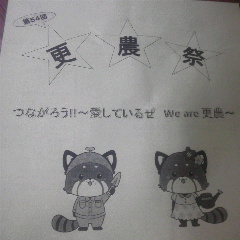 第54回
更農祭
つながろう!!～愛しているぜ We are 更農～